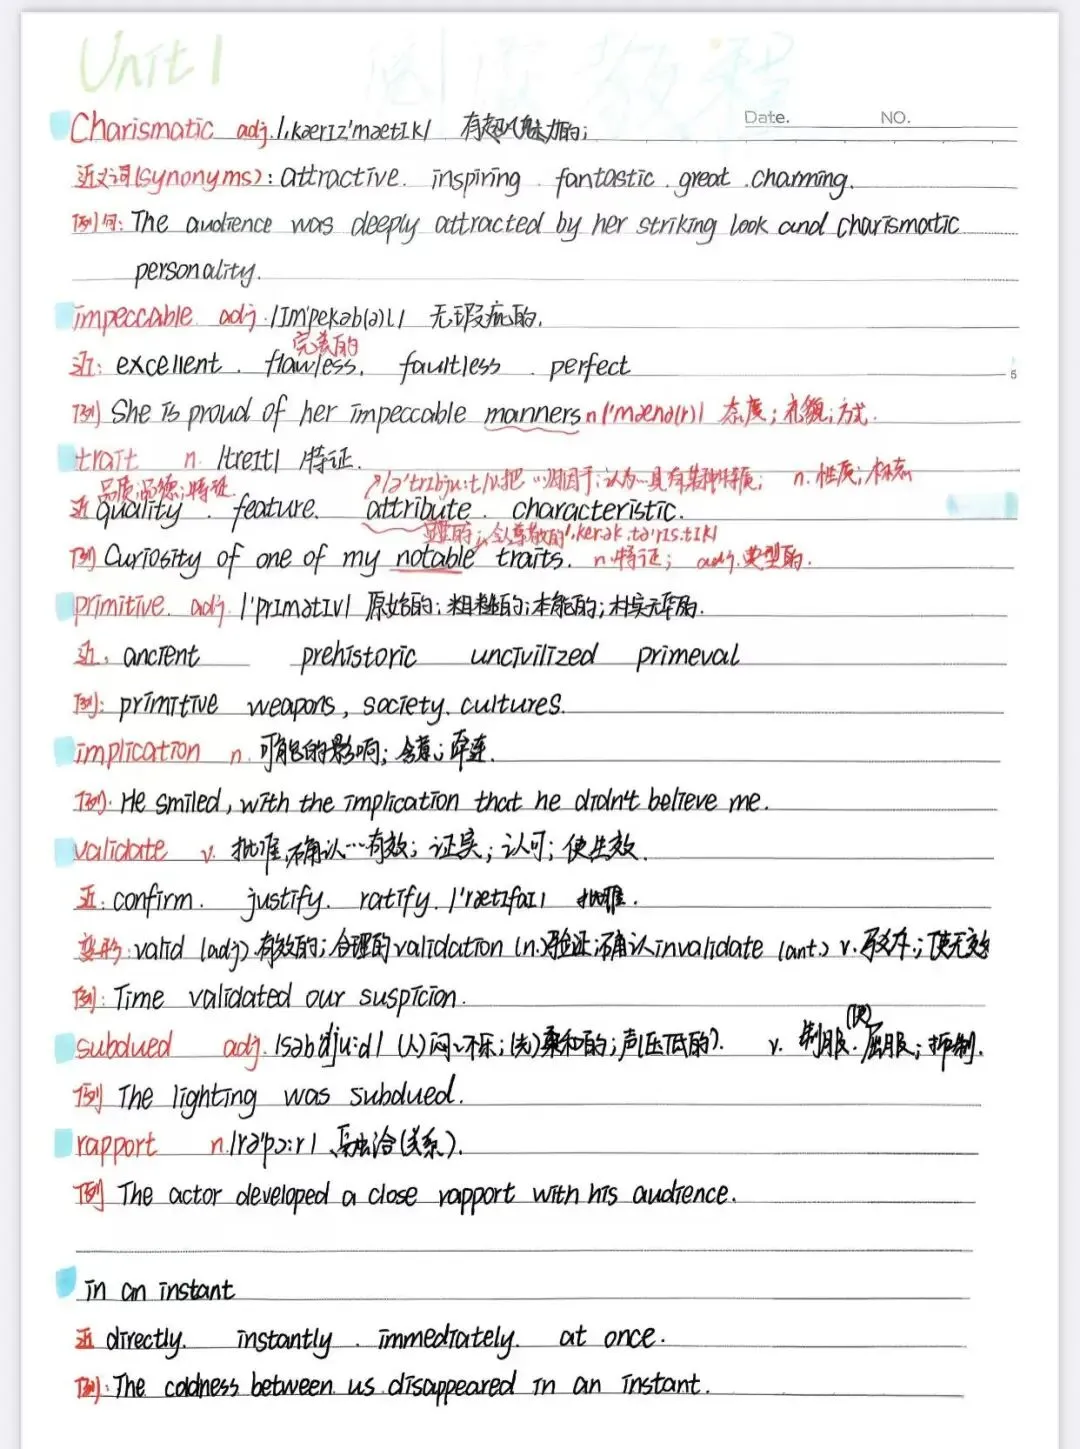 Unit 1
Date. NO.
Charismatic adj. /ˌkærɪz'mætɪk/ 有超凡魅力的;
近义词(synonyms): attractive. inspiring. fantastic. great. charming.
例句: The audience was deeply attracted by her striking look and charismatic
personality.
impeccable adj. /ɪm'pekəb(ə)l/ 无瑕疵的.
完美的
近: excellent. flawless. faultless. perfect
5
例) She is proud of her impeccable manners n /'mænə(r)/ 态度; 礼貌; 方式.
trait n. /treɪt/ 特证.
品质; 品德; 特征. /ə'trɪbjuːt/ v.把…归因于; 认为…具有某种特质; n. 性质; 标志
近 quality. feature. attribute. characteristic.
显著的; 令尊敬的 /ˌkerəktə'rɪstɪk/
例) Curiosity of one of my notable traits. n.特征; adj.典型的.
primitive. adj. /'prɪmətɪv/ 原始的; 粗糙的; 本能的; 朴实无华的.
近. ancient prehistoric uncivilized primeval
例): primitive weapons, society. cultures.
implication n. 可能的影响; 含意; 牵连.
例). He smiled, with the implication that he didn't believe me.
validate v. 批准,确认…有效; 证实; 认可; 使生效.
近. confirm. justify. ratify. /'rætɪfaɪ/ 批准.
变形: valid (adj).有效的; 合理的 validation (n.)验证;确认 invalidate (ant.) v. 驳斥; 使无效
例): Time validated our suspicion.
(使)
subdued adj. /səb'djuːd/ (人)闷闷不乐; (光)柔和的; 声(压低的). v. 制服. 屈服; 抑制.
例) The lighting was subdued.
rapport n. /ræ'pɔːr/ 融洽(关系).
例) The actor developed a close rapport with his audience.
in an instant
近 directly. instantly. immediately. at once.
例): The coldness between us disappeared in an instant.